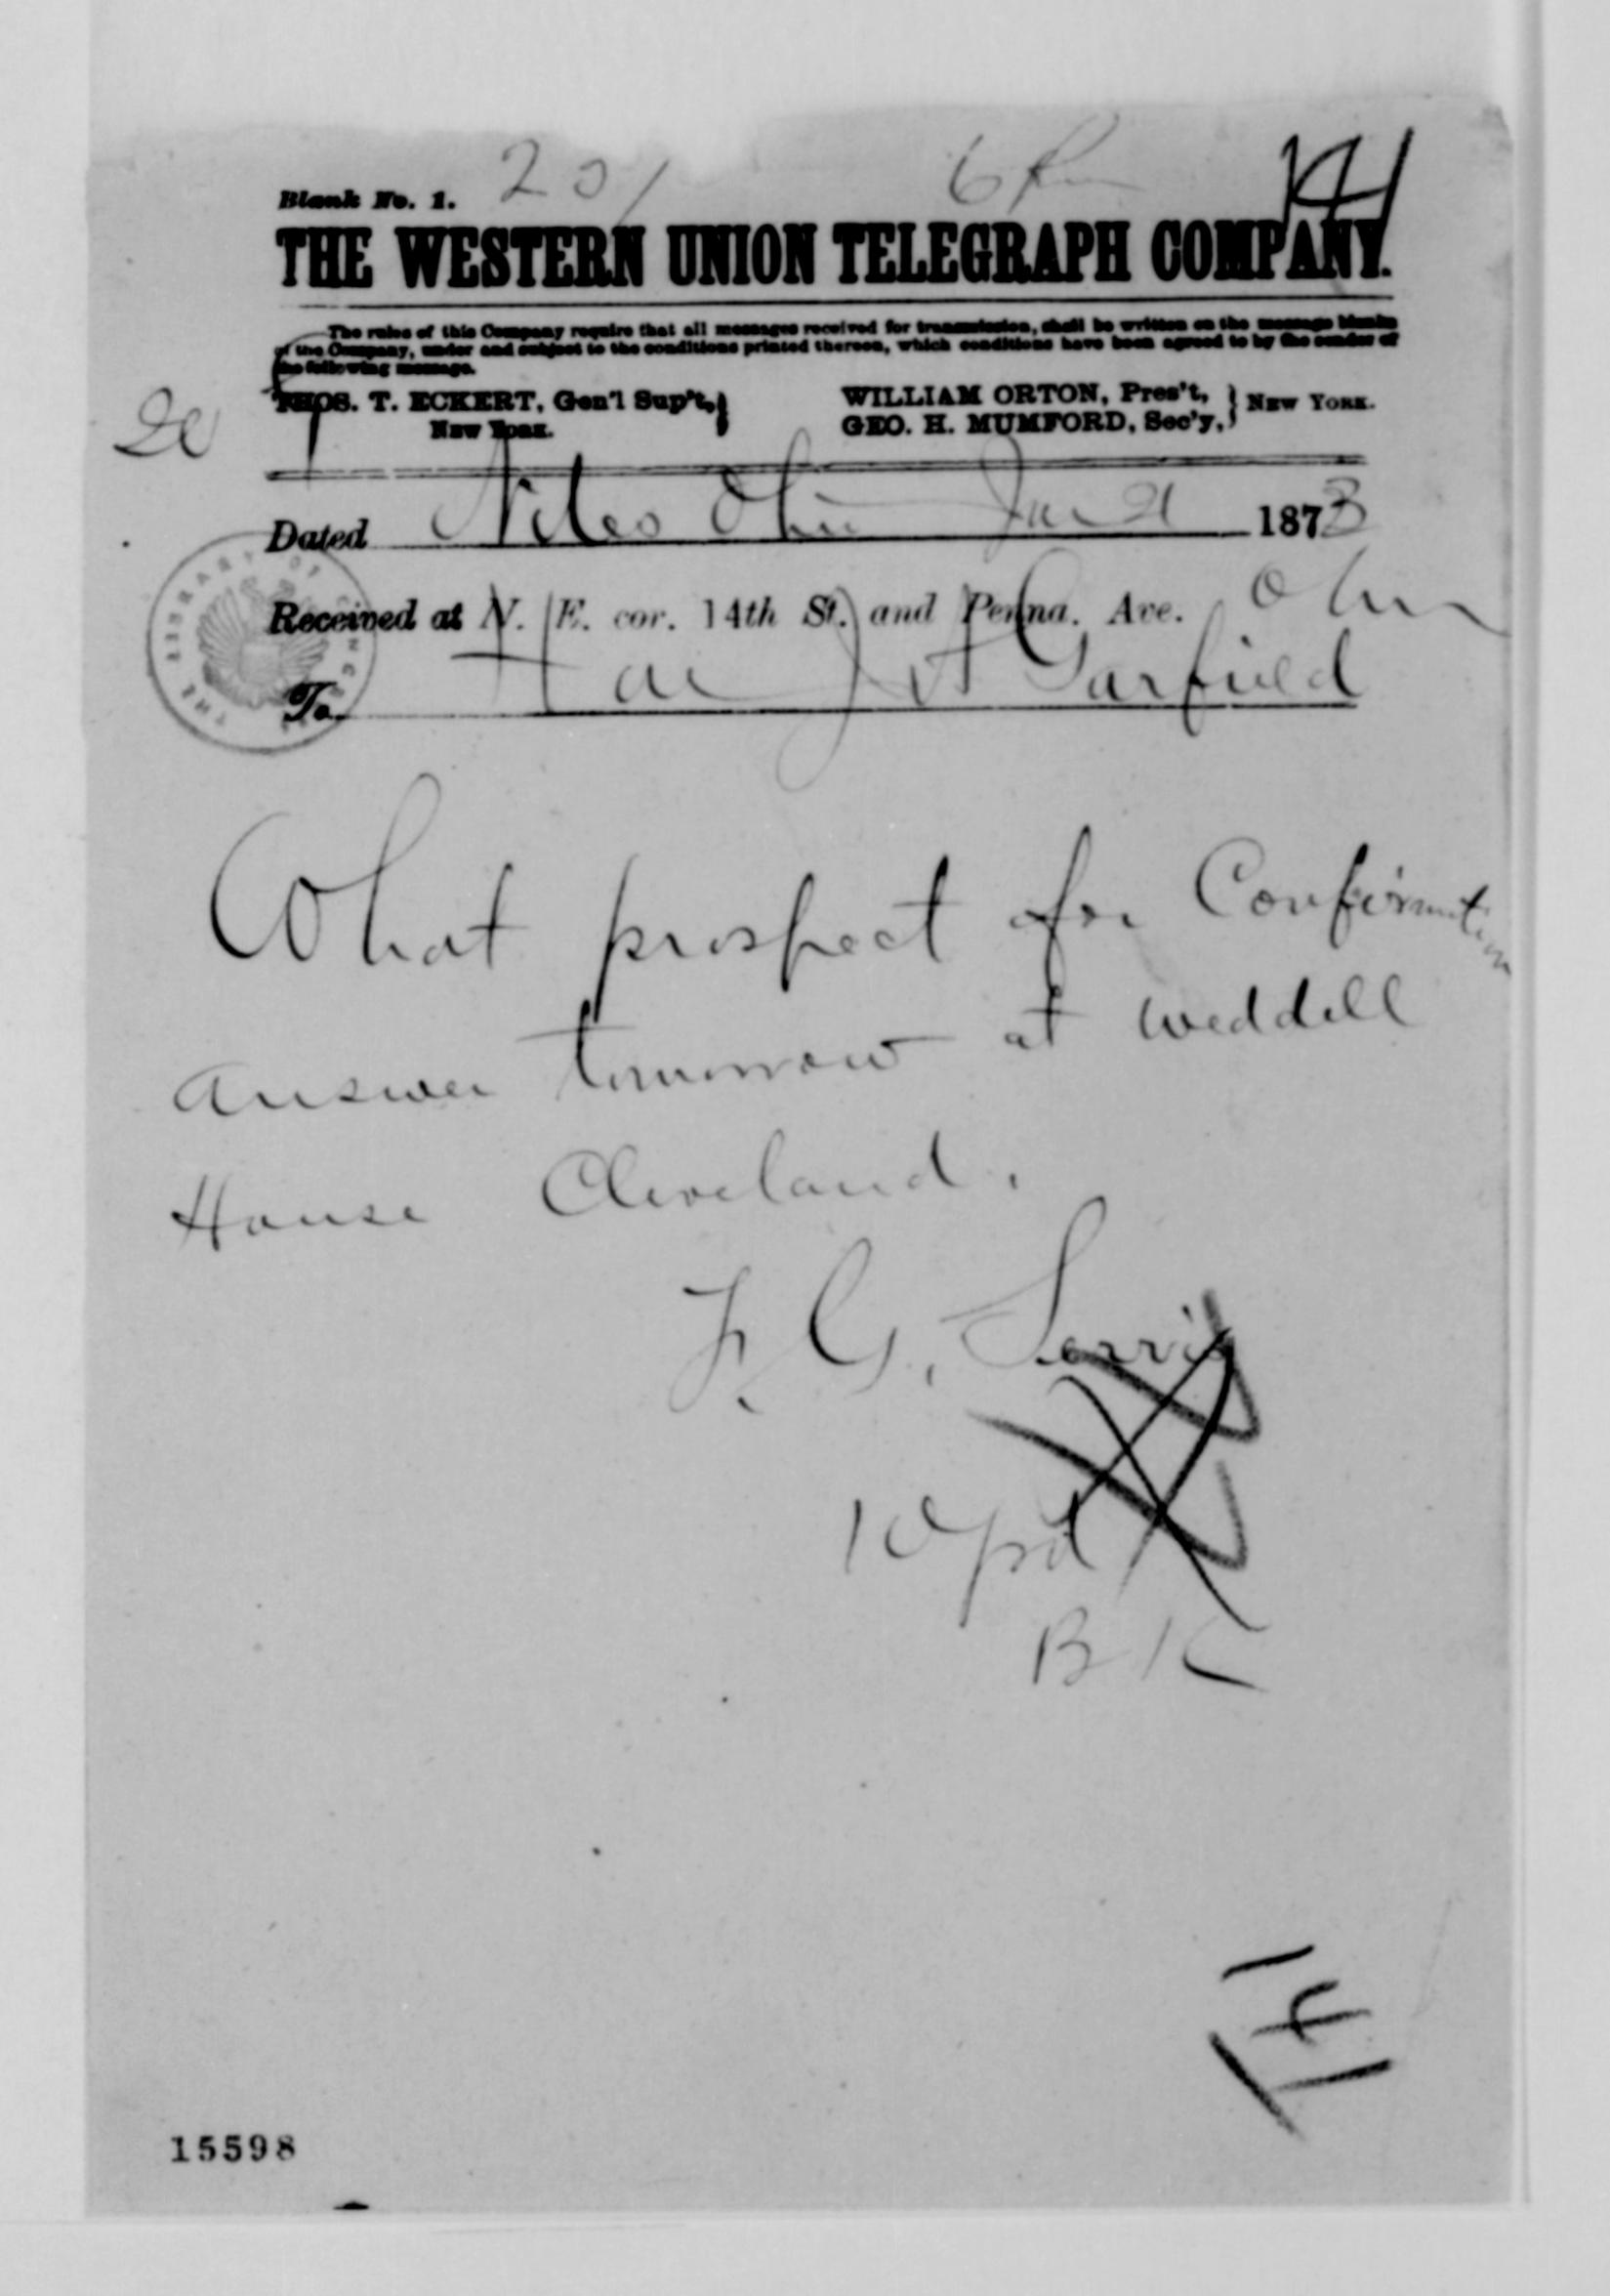 201 6
14
Blank No. 1.
THE WESTERN UNION TELEGRAPH COMPANY.
The rules of this Company require that all messages received for transmission, shall be written on the message blanks
of the Company, under and subject to the conditions printed thereon, which conditions have been agreed to by the sender of
the following message.
THOS. T. ECKERT, Gen'l Sup't, WILLIAM ORTON, Pres't,
New York. GEO. H. MUMFORD, Sec'y, New York.
Dated Niles Ohio Jan 21 1873
Received at N. E. cor. 14th St. and Penna. Ave. Ohio
To Hon J A Garfield
THE LIBRARY OF CONGRESS
What prospect for Confirmation
answer tomorrow at weddell
House Cleveland.
F. G. Servis
10 pd
BK
14
15598